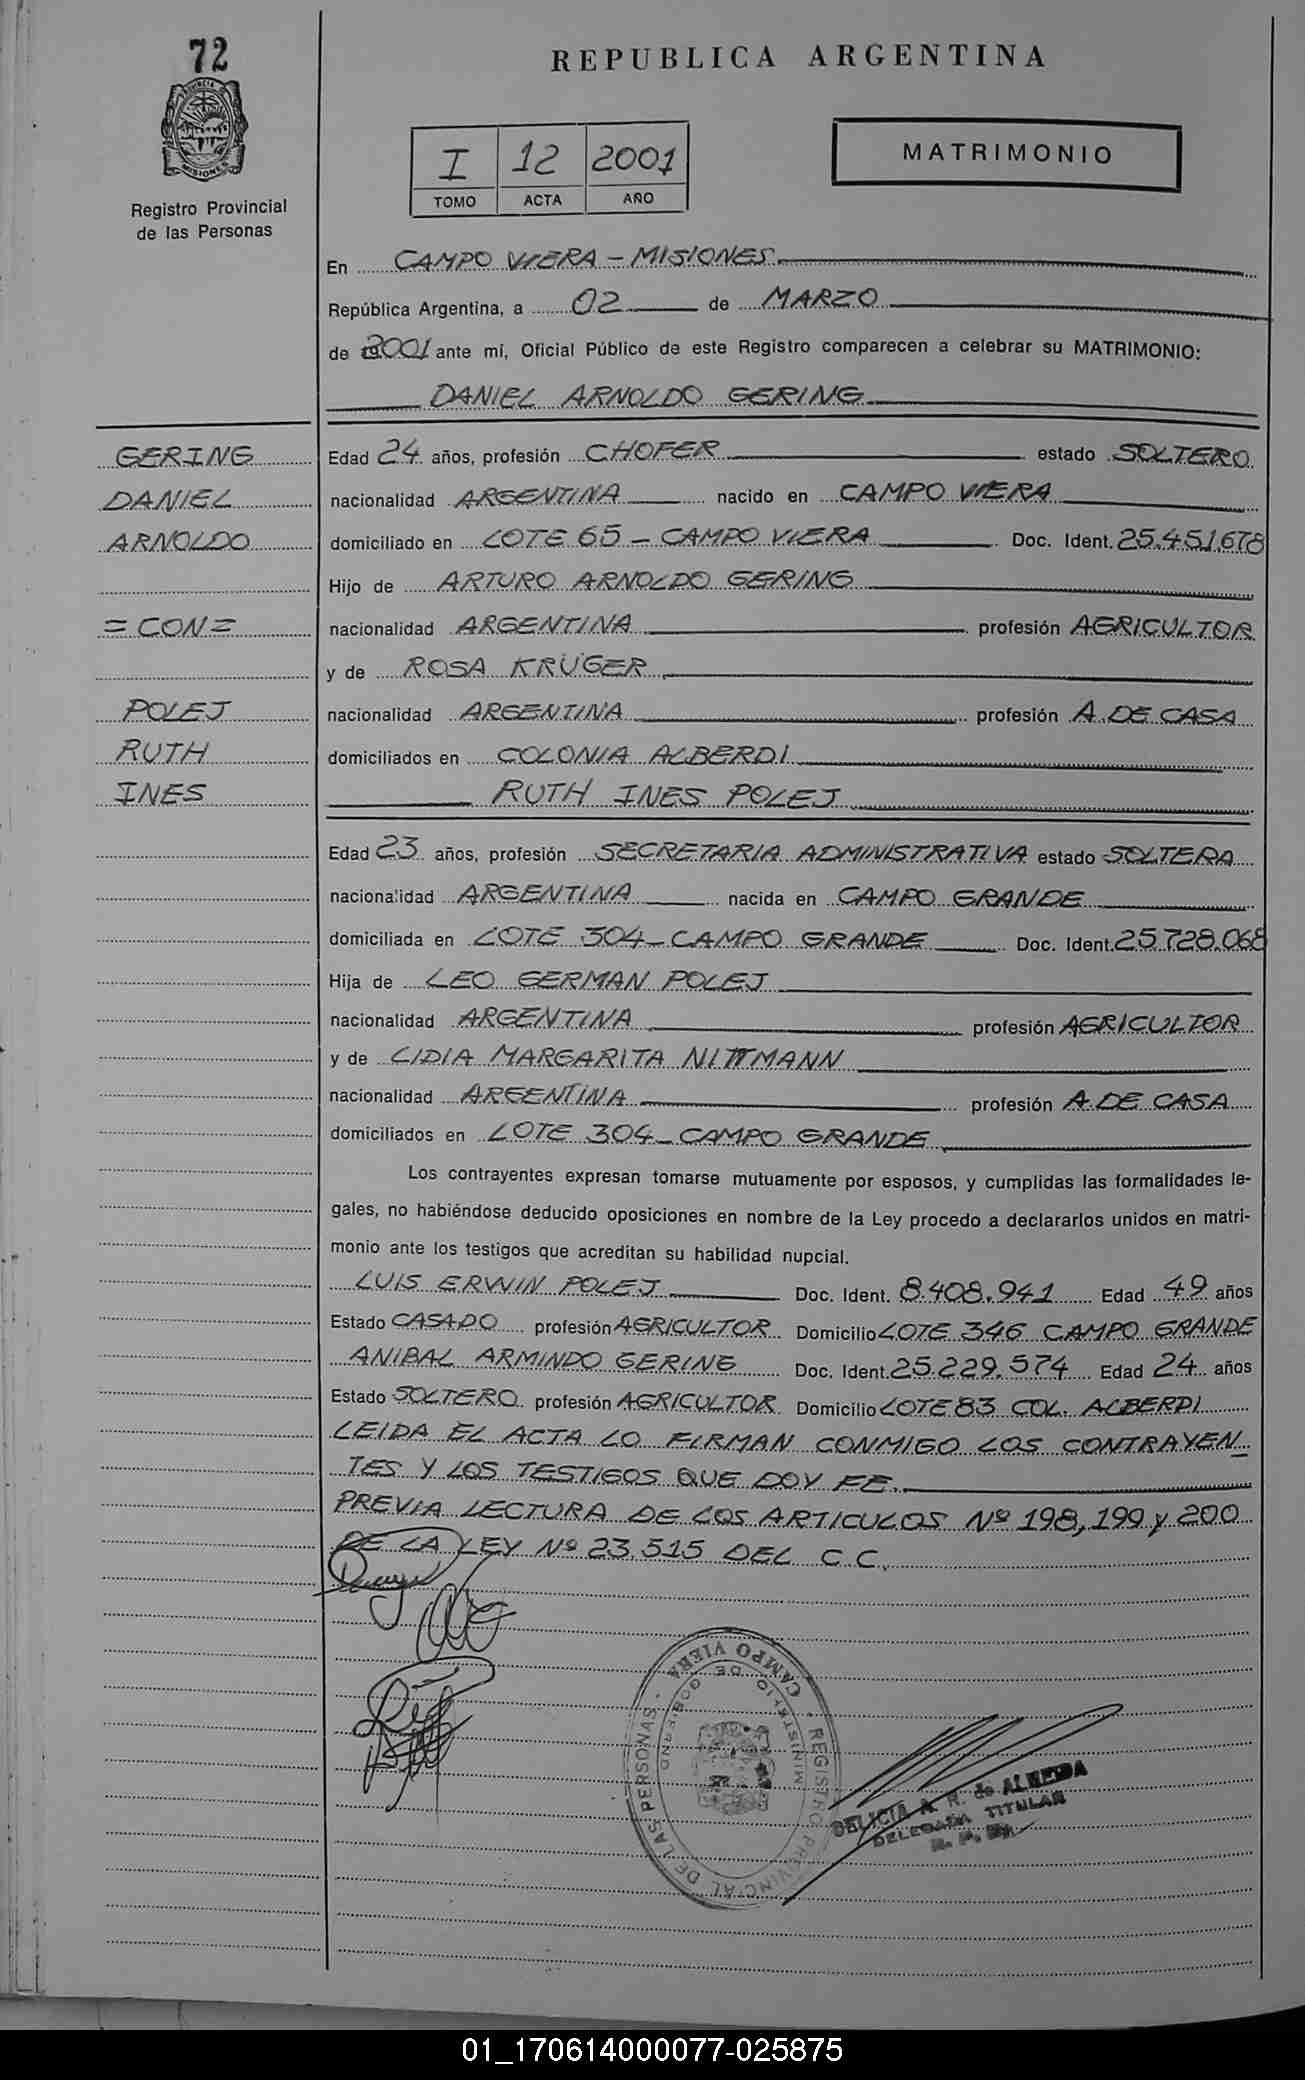 72
PROVINCIA DE
MISIONES
Registro Provincial
de las Personas
REPUBLICA ARGENTINA
I 12 2001
TOMO ACTA AÑO
MATRIMONIO
En CAMPO VIERA - MISIONES
República Argentina, a 02 de MARZO
de 2001 ante mí, Oficial Público de este Registro comparecen a celebrar su MATRIMONIO:
DANIEL ARNOLDO GERING
GERING
DANIEL
ARNOLDO
= CON =
POLEJ
RUTH
INES
Edad 24 años, profesión CHOFER estado SOLTERO
nacionalidad ARGENTINA nacido en CAMPO VIERA
domiciliado en LOTE 65 - CAMPO VIERA Doc. Ident. 25.451.678
Hijo de ARTURO ARNOLDO GERING
nacionalidad ARGENTINA profesión AGRICULTOR
y de ROSA KRÜGER
nacionalidad ARGENTINA profesión A. DE CASA
domiciliados en COLONIA ALBERDI
RUTH INES POLEJ
Edad 23 años, profesión SECRETARIA ADMINISTRATIVA estado SOLTERA
nacionalidad ARGENTINA nacida en CAMPO GRANDE
domiciliada en LOTE 304 - CAMPO GRANDE Doc. Ident. 25.728.068
Hija de LEO GERMAN POLEJ
nacionalidad ARGENTINA profesión AGRICULTOR
y de LIDIA MARGARITA NITTMANN
nacionalidad ARGENTINA profesión A. DE CASA
domiciliados en LOTE 304 - CAMPO GRANDE
Los contrayentes expresan tomarse mutuamente por esposos, y cumplidas las formalidades le-
gales, no habiéndose deducido oposiciones en nombre de la Ley procedo a declararlos unidos en matri-
monio ante los testigos que acreditan su habilidad nupcial.
LUIS ERWIN POLEJ Doc. Ident. 8.408.941 Edad 49 años
Estado CASADO profesión AGRICULTOR Domicilio LOTE 346 CAMPO GRANDE
ANIBAL ARMINDO GERING Doc. Ident. 25.229.574 Edad 24 años
Estado SOLTERO profesión AGRICULTOR Domicilio LOTE 83 COL. ALBERDI
LEIDA EL ACTA LO FIRMAN CONMIGO LOS CONTRAYEN
TES Y LOS TESTIGOS QUE DOY FE.
PREVIA LECTURA DE LOS ARTICULOS Nº 198, 199 y 200
DE LA LEY Nº 23.515 DEL C C.
REGISTRO PROVINCIAL DE LAS PERSONAS - CAMPO VIERA
MINISTERIO DE GOBIERNO
DELICIA A. R. de ALMEIDA
DELEGADA TITULAR
R. P. P.
01_170614000077-025875